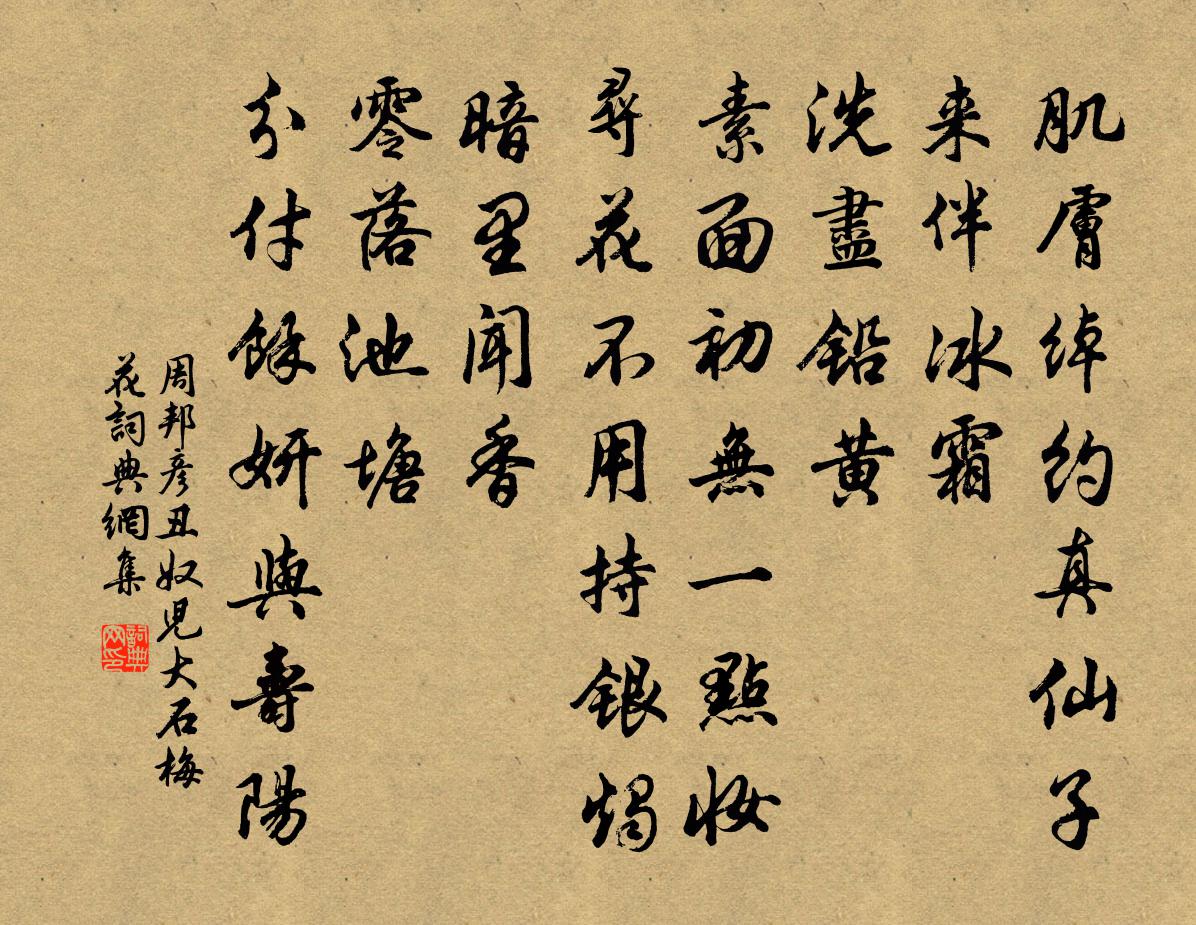 肌膚綽約真仙子
来伴冰霜
洗盡鉛黄
素面初無一點妝
尋花不用持銀燭
暗里聞香
零落池塘
分付餘妍與壽陽
周邦彦丑奴児大石梅
花詞典網集
詞典
网印